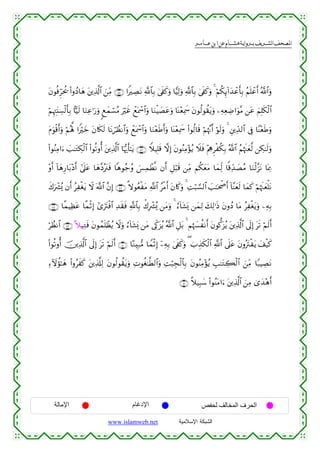 المصحف الشريف برواية هشام عن ابن عامر
وَٱللَّهُ أَعْلَمُ بِأَعْدَآئِكُمْ ۚ وَكَفَىٰ بِٱللَّهِ وَلِيًّا وَكَفَىٰ بِٱللَّهِ نَصِيرًا ۝ مِّنَ ٱلَّذِينَ هَادُوا۟ يُحَرِّفُونَ
ٱلْكَلِمَ عَن مَّوَاضِعِهِۦ وَيَقُولُونَ سَمِعْنَا وَعَصَيْنَا وَٱسْمَعْ غَيْرَ مُسْمَعٍ وَرَٰعِنَا لَيًّۢا بِأَلْسِنَتِهِمْ
وَطَعْنًا فِى ٱلدِّينِ ۚ وَلَوْ أَنَّهُمْ قَالُوا۟ سَمِعْنَا وَأَطَعْنَا وَٱسْمَعْ وَٱنظُرْنَا لَكَانَ خَيْرًا لَّهُمْ وَأَقْوَمَ
وَلَٰكِن لَّعَنَهُمُ ٱللَّهُ بِكُفْرِهِمْ فَلَا يُؤْمِنُونَ إِلَّا قَلِيلًا ۝ يَٰٓأَيُّهَا ٱلَّذِينَ أُوتُوا۟ ٱلْكِتَٰبَ ءَامِنُوا۟
بِمَا نَزَّلْنَا مُصَدِّقًا لِّمَا مَعَكُم مِّن قَبْلِ أَن نَّطْمِسَ وُجُوهًا فَنَرُدَّهَا عَلَىٰٓ أَدْبَارِهَآ أَوْ
نَلْعَنَهُمْ كَمَا لَعَنَّآ أَصْحَٰبَ ٱلسَّبْتِ ۚ وَكَانَ أَمْرُ ٱللَّهِ مَفْعُولًا ۝ إِنَّ ٱللَّهَ لَا يَغْفِرُ أَن يُشْرَكَ
بِهِۦ وَيَغْفِرُ مَا دُونَ ذَٰلِكَ لِمَن يَشَآءُ ۚ وَمَن يُشْرِكْ بِٱللَّهِ فَقَدِ ٱفْتَرَىٰٓ إِثْمًا عَظِيمًا ۝
أَلَمْ تَرَ إِلَى ٱلَّذِينَ يُزَكُّونَ أَنفُسَهُم ۚ بَلِ ٱللَّهُ يُزَكِّى مَن يَشَآءُ وَلَا يُظْلَمُونَ فَتِيلًا ۝ ٱنظُرْ
كَيْفَ يَفْتَرُونَ عَلَى ٱللَّهِ ٱلْكَذِبَ ۖ وَكَفَىٰ بِهِۦٓ إِثْمًا مُّبِينًا ۝ أَلَمْ تَرَ إِلَى ٱلَّذِينَ أُوتُوا۟
نَصِيبًا مِّنَ ٱلْكِتَٰبِ يُؤْمِنُونَ بِٱلْجِبْتِ وَٱلطَّٰغُوتِ وَيَقُولُونَ لِلَّذِينَ كَفَرُوا۟ هَٰٓؤُلَآءِ
أَهْدَىٰ مِنَ ٱلَّذِينَ ءَامَنُوا۟ سَبِيلًا ۝
الحرف المخالف لحفص الإدغام الإمالة
الشبكة الإسلامية www.islamweb.net